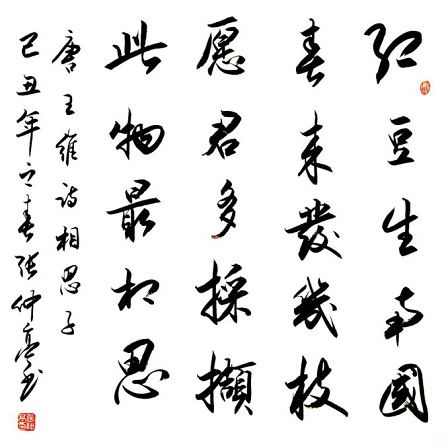 红豆生南國
春来發幾枝
愿君多採擷
此物最相思
唐王維诗相思子
己丑年之春張仲亭书